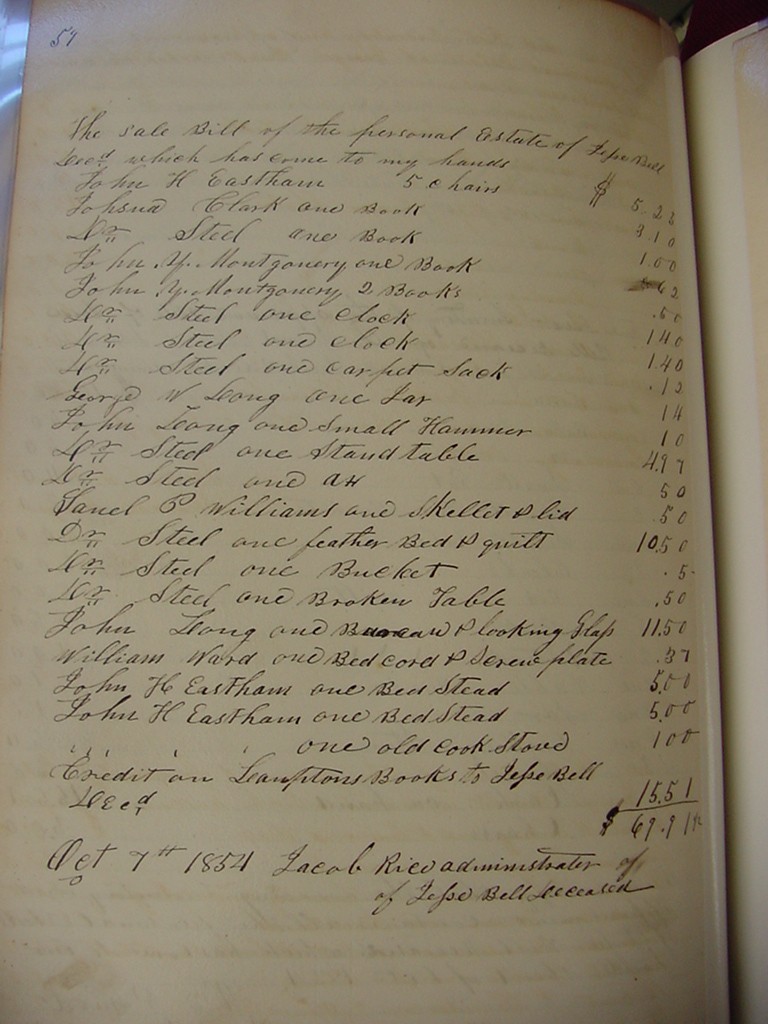 57
The sale Bill of the personal Estate of Jesse Bell
Decd which has come to my hands
John H Eastham 5 Chairs $ 5.25
Johsua Clark one Book 3.10
Dr Steel one Book 1.00
John Y. Montgonery one Book
John Y. Montgonery 2 Books .50
Dr Steel one clock 140
Dr Steel one clock 1.40
Dr Steel one carpet sack .12
George W Long one Jar 14
John Long one Small Hammer 10
Dr Steel one Stand table 4.97
Dr Steel one ax 50
P Williams one Skellet & lid 50
Dr Steel one feather Bed & quilt 10.50
Dr Steel one Bucket .5
Dr Steel one Broken Table .50
John Long one Bureau & looking Glass 11.50
William Ward one Bed cord & Screw plate .37
John H Eastham one Bed Stead 5.00
John H Eastham one Bed Stead 5.00
" " " " one old cook Stove 100
Credit on Lamptons Books to Jesse Bell
Decd 15.51
$ 69.91½
Oct 7th 1854 Jacob Rice administrater of
of Jesse Bell Deceased